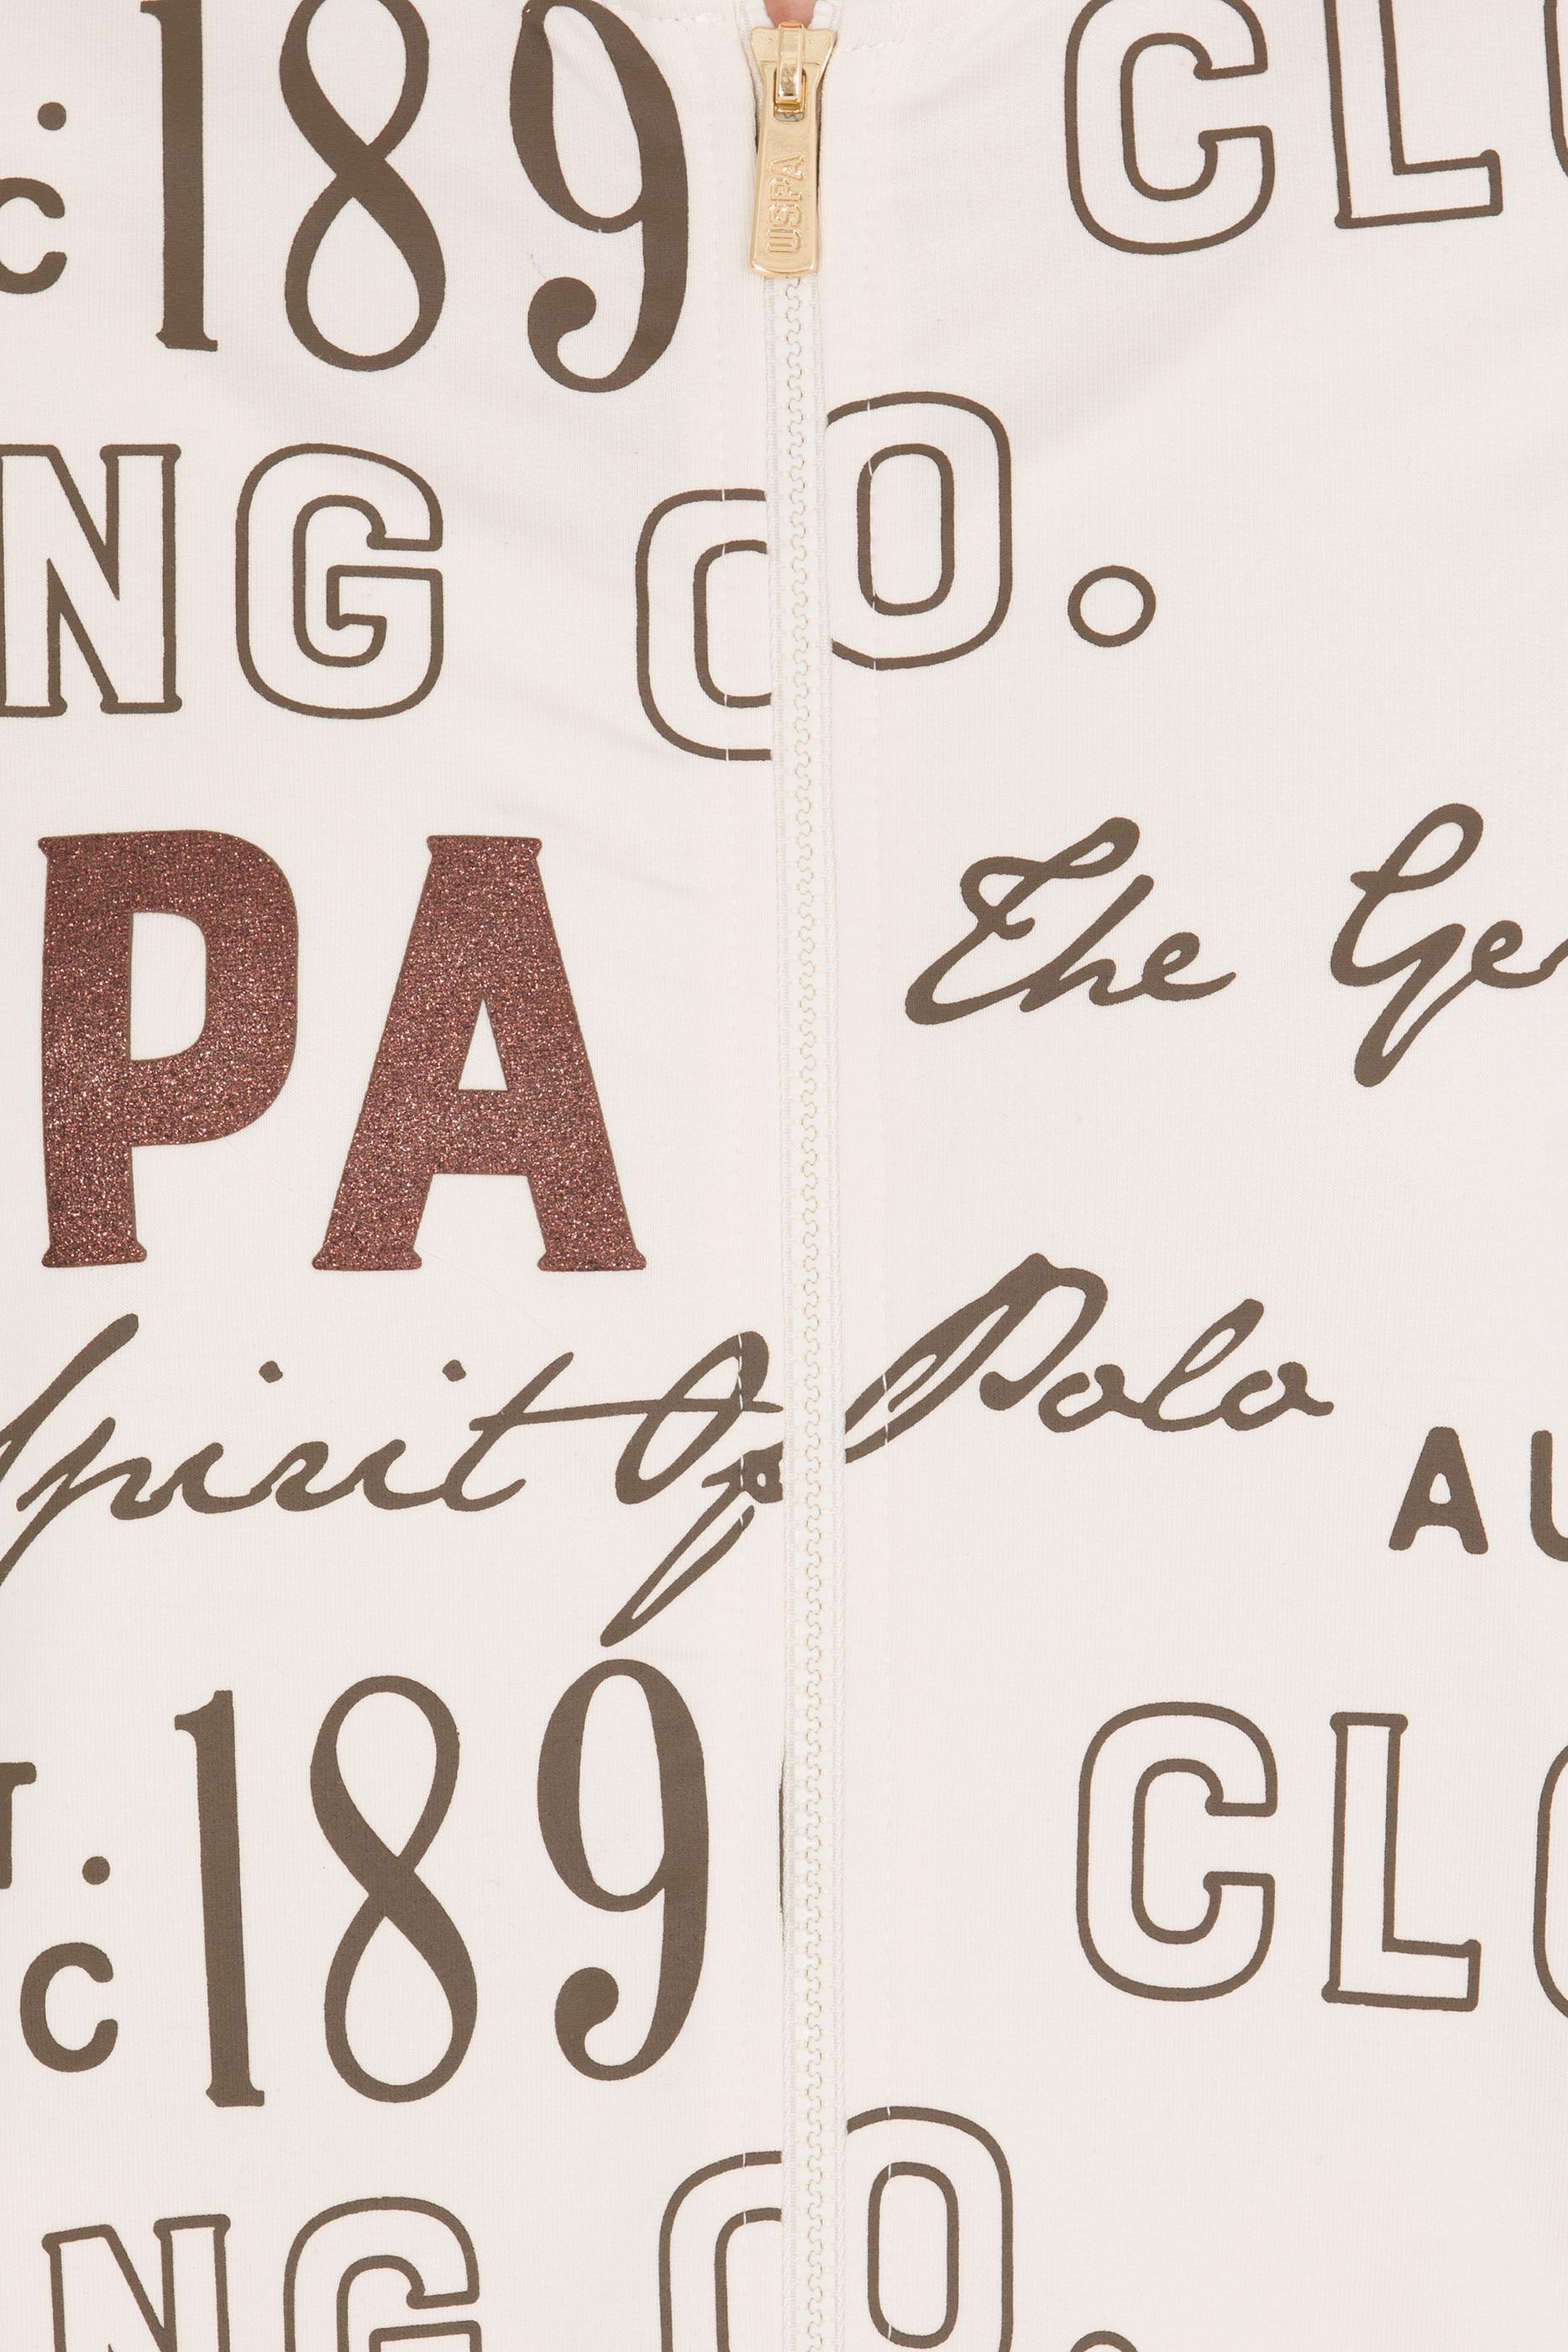 189 CLO
C
USPA
NG CO.
PA The Ge
Spirit Of Polo
AU
T. 189 CLO
C
NG CO.